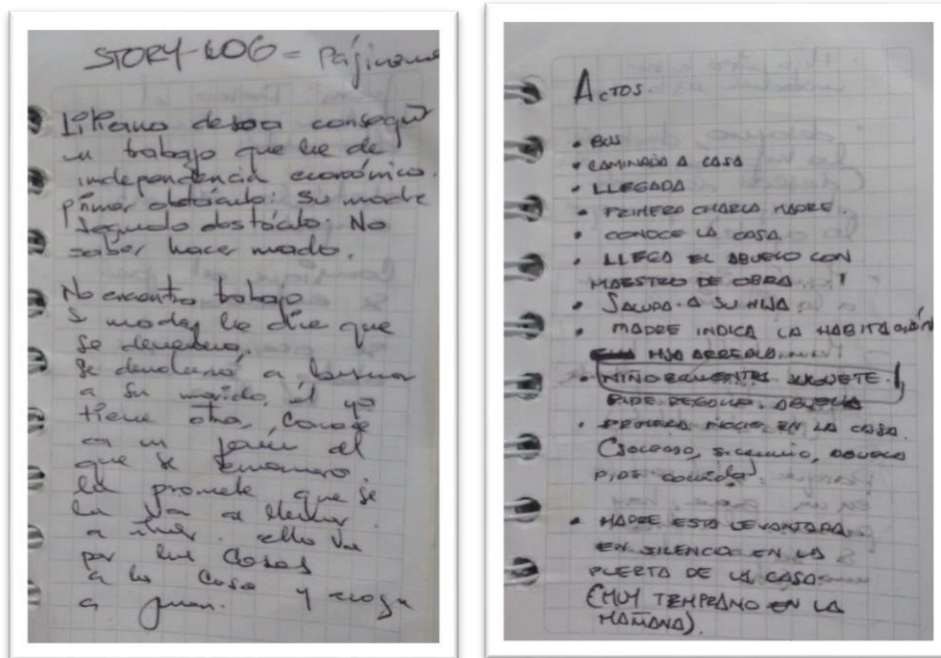 STORY-LOG = Página uno
Liliana desea conseguir
un trabajo que le de
independencia económica.
primer obstáculo: Su madre
Segundo obstáculo: No
saber hacer nada.
No encontro trabajo
S madre le dice que
se
se a buscar
a su marido, él ya
tiene otra, conoce
a un joven del
que se enamoro
le promete que se
la va a llevar
a vivir. ella va
por las cosas
a la casa y
a Juan.
ACTOS.
• BUS
• CAMINADA A CASA
• LLEGADA
• PRIMERA CHARLA MADRE.
• CONOCE LA CASA
• LLEGA EL ABUELO CON
MAESTRO DE OBRA
• SALUDA A SU HIJA
• MADRE INDICA LA HABITACIÓN
HIJA
• NIÑO ENCUENTRA JUGUETE.
PIDE REGALO. ABUELO
• PRIMERA NOCHE EN LA CASA.
(SOCORRO, SILENCIO, ABUELO
PIDE COMIDA).
• MADRE ESTA LEVANTADA
EN SILENCIO EN LA
PUERTA DE LA CASA.
(MUY TEMPRANO EN LA
MAÑANA).